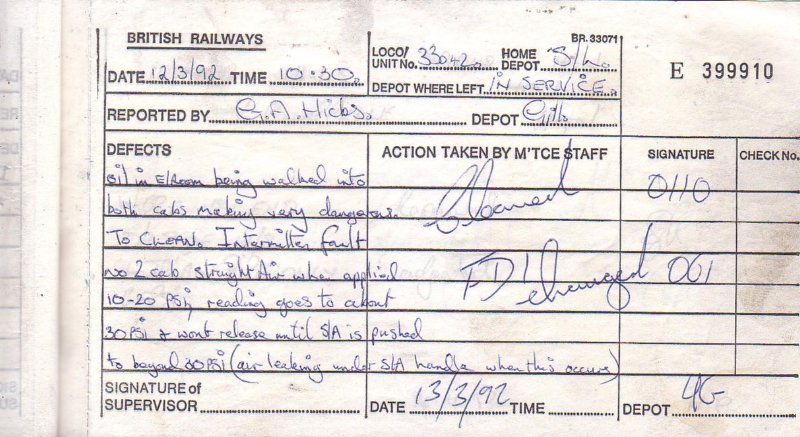 BRITISH RAILWAYS
BR. 33071
LOCO/ UNIT No. 33042 HOME DEPOT S/h.
E 399910
DATE 12/3/92 TIME 10.30
DEPOT WHERE LEFT IN SERVICE
REPORTED BY G.A. Hicks. DEPOT
DEFECTS ACTION TAKEN BY M'TCE STAFF SIGNATURE CHECK No.
Oil in E/Room being walked into
both cabs making very dangerous. Cleaned 0110
To CLEAN. Intermitten fault
No 2 cab straight Air when applied changed 061
10-20 PSI, reading goes to about
30 PSI & wont release until S/A is pushed
to beyond 30 PSI (air leaking under S/A handle when this occurs)
SIGNATURE of SUPERVISOR DATE 13/3/92 TIME DEPOT